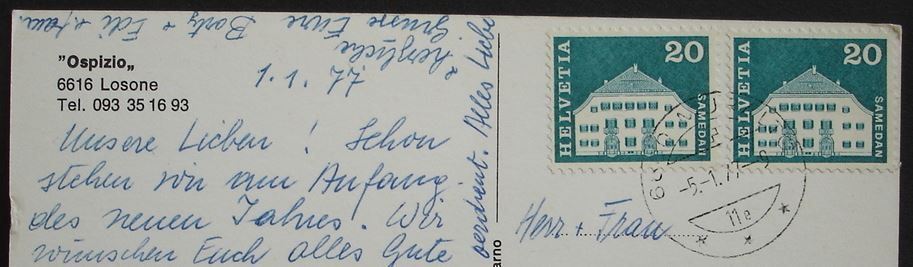 "Ospizio„
6616 Losone
Tel. 093 35 16 93
1. 1. 77
Unsere Lieben ! Schon
stehen wir am Anfang
des neuen Jahres! Wir
wünschen Euch alles Gute
verdient. Alles Liebe
& herzliche
Grüsse Eure
Edi
HELVETIA
20
SAMEDAN
HELVETIA
20
SAMEDAN
-5.-1.77-9
11e
Herr + Frau
arno